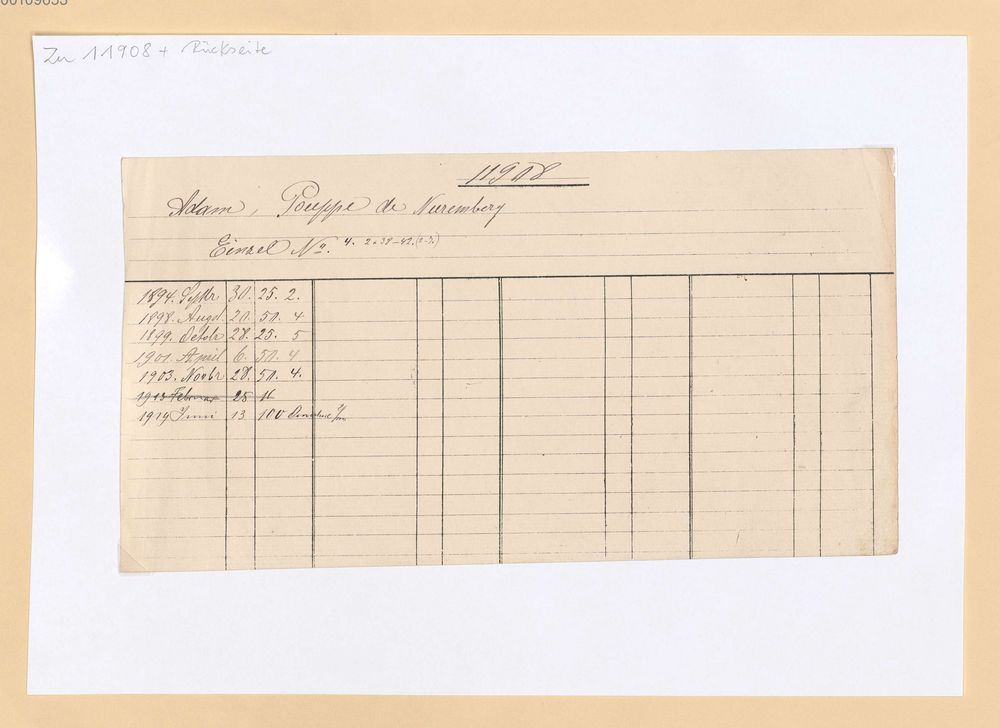 00109653
Zu 11908 + Rückseite
11908
Adam, Poupée de Nuremberg
Einzel No. 4. 2 x 38-42.
1894. Septbr 30. 25. 2.
1898. Augst. 20. 50. 4
1899. Octobr 28. 25. 5
1901. April 6. 50. 4
1903. Novbr 28. 50. 4.
1913 Februar 25 11
1919 Juni 13 100